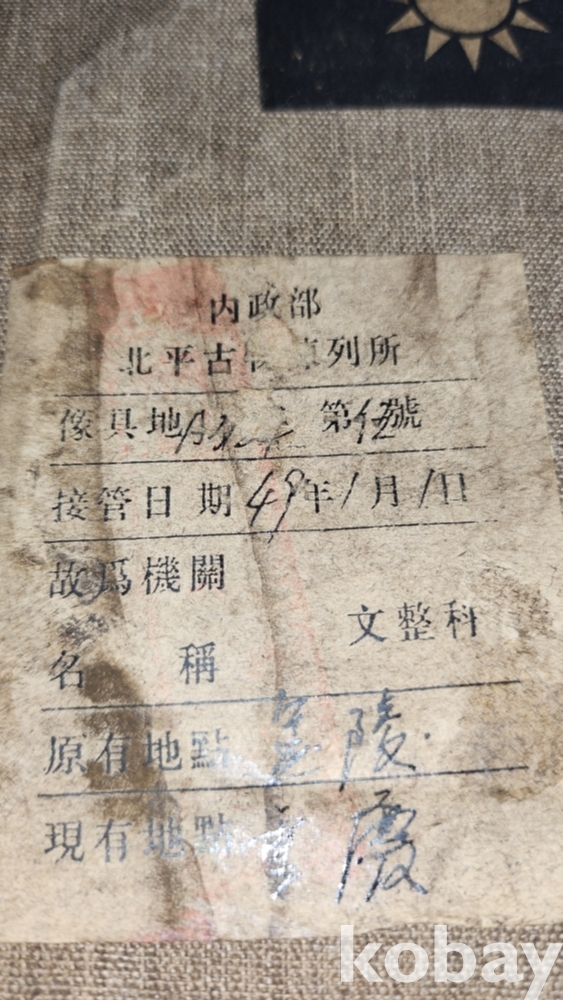 内政部
北平古物陳列所
傢具地 第伍號
接管日期 49年1月1日
故爲機關
文整科
名 稱
原有地點 陵
現有地點 重慶
kobay